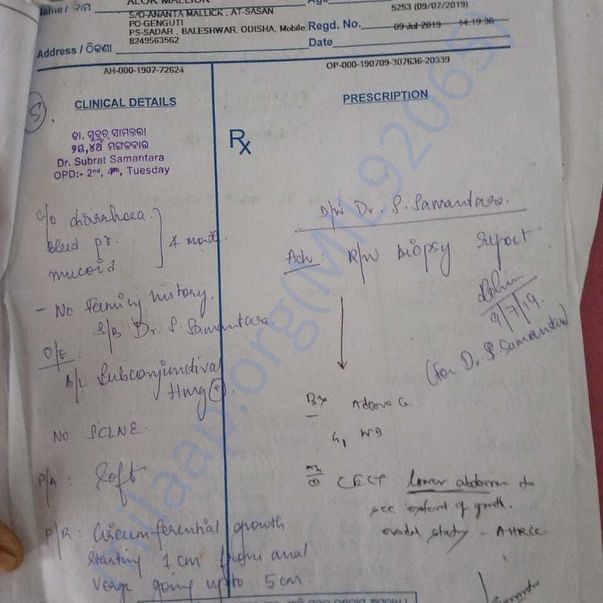 Name / ନାମ ALOK MALLICK
S/O-ANANTA MALLICK , AT-SASAN
PO-GENGUTI
PS-SADAR , BALESHWAR, ODISHA, Mobile
8249563562
5253 (09/07/2019)
Regd. No. 09-Jul-2019 14:19:36
Date
Address / ଠିକଣା
AH-000-1907-72624
OP-000-190709-307636-20339
CLINICAL DETAILS
PRESCRIPTION
ଡା. ସୁବ୍ରତ ସାମନ୍ତରା
୨ୟ,୪ର୍ଥ ମଙ୍ଗଳବାର
Dr. Subrat Samantara
OPD:- 2nd, 4th, Tuesday
Rx
c/o diarrhoea
bleed pr.
mucoid
- No family history.
S/B Dr. S. Samantara
O/E :
B/L Subconjunctival
Hmg (+)
NO SCLNE.
P/A : Soft
P/R : Circumferential growth
starting 1 cm from anal
verge going upto 5 cm.
D/W Dr. S. Samantara.
Adv : R/W biopsy report
9/7/19.
(for Dr. S. Samantara)
Bx Adeno Ca.
G1 WD
CECT lower abdomen to
see extent of growth.
nodal study - AHRCC
milaap.org(MIL92065)